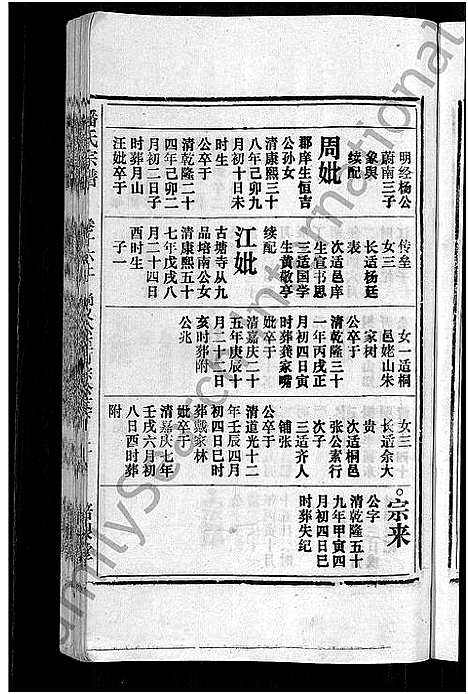 明经杨公
蔚南三子
象舆
续配
周妣
郡庠生恒吉
公孙女
清康熙三十
八年己卯九
月初十日未
时生
公卒于
清乾隆二十
四年己卯二
月初二日子
时葬月山
汪妣卒于
传垒
女三
长适杨廷
表
次适邑庠
生宣书思
三适国学
生黄敬亭
续配
江妣
古塘寺从九
品培南公女
清康熙五十
七年戊戌八
月二十四日
酉时生
子一
女一适桐
邑姥山朱
家树
公卒于
清乾隆三十
一年丙戌正
月初四日寅
时葬龚家嘴
妣卒于
清嘉庆二十
五年庚辰十
月二十二日
亥时葬附
公兆
女三
长适余大
贵
次适桐邑
张公素行
次子
三适齐人
铺张
公卒于
清道光十二
年壬辰四月
初四日巳时
葬戴家林
妣卒于
清嘉庆七年
壬戌六月初
八日酉时葬
附
宗来
公字
清乾隆五十
九年甲寅四
月初四日巳
时葬失纪
潘氏宗谱
FamilySearch International